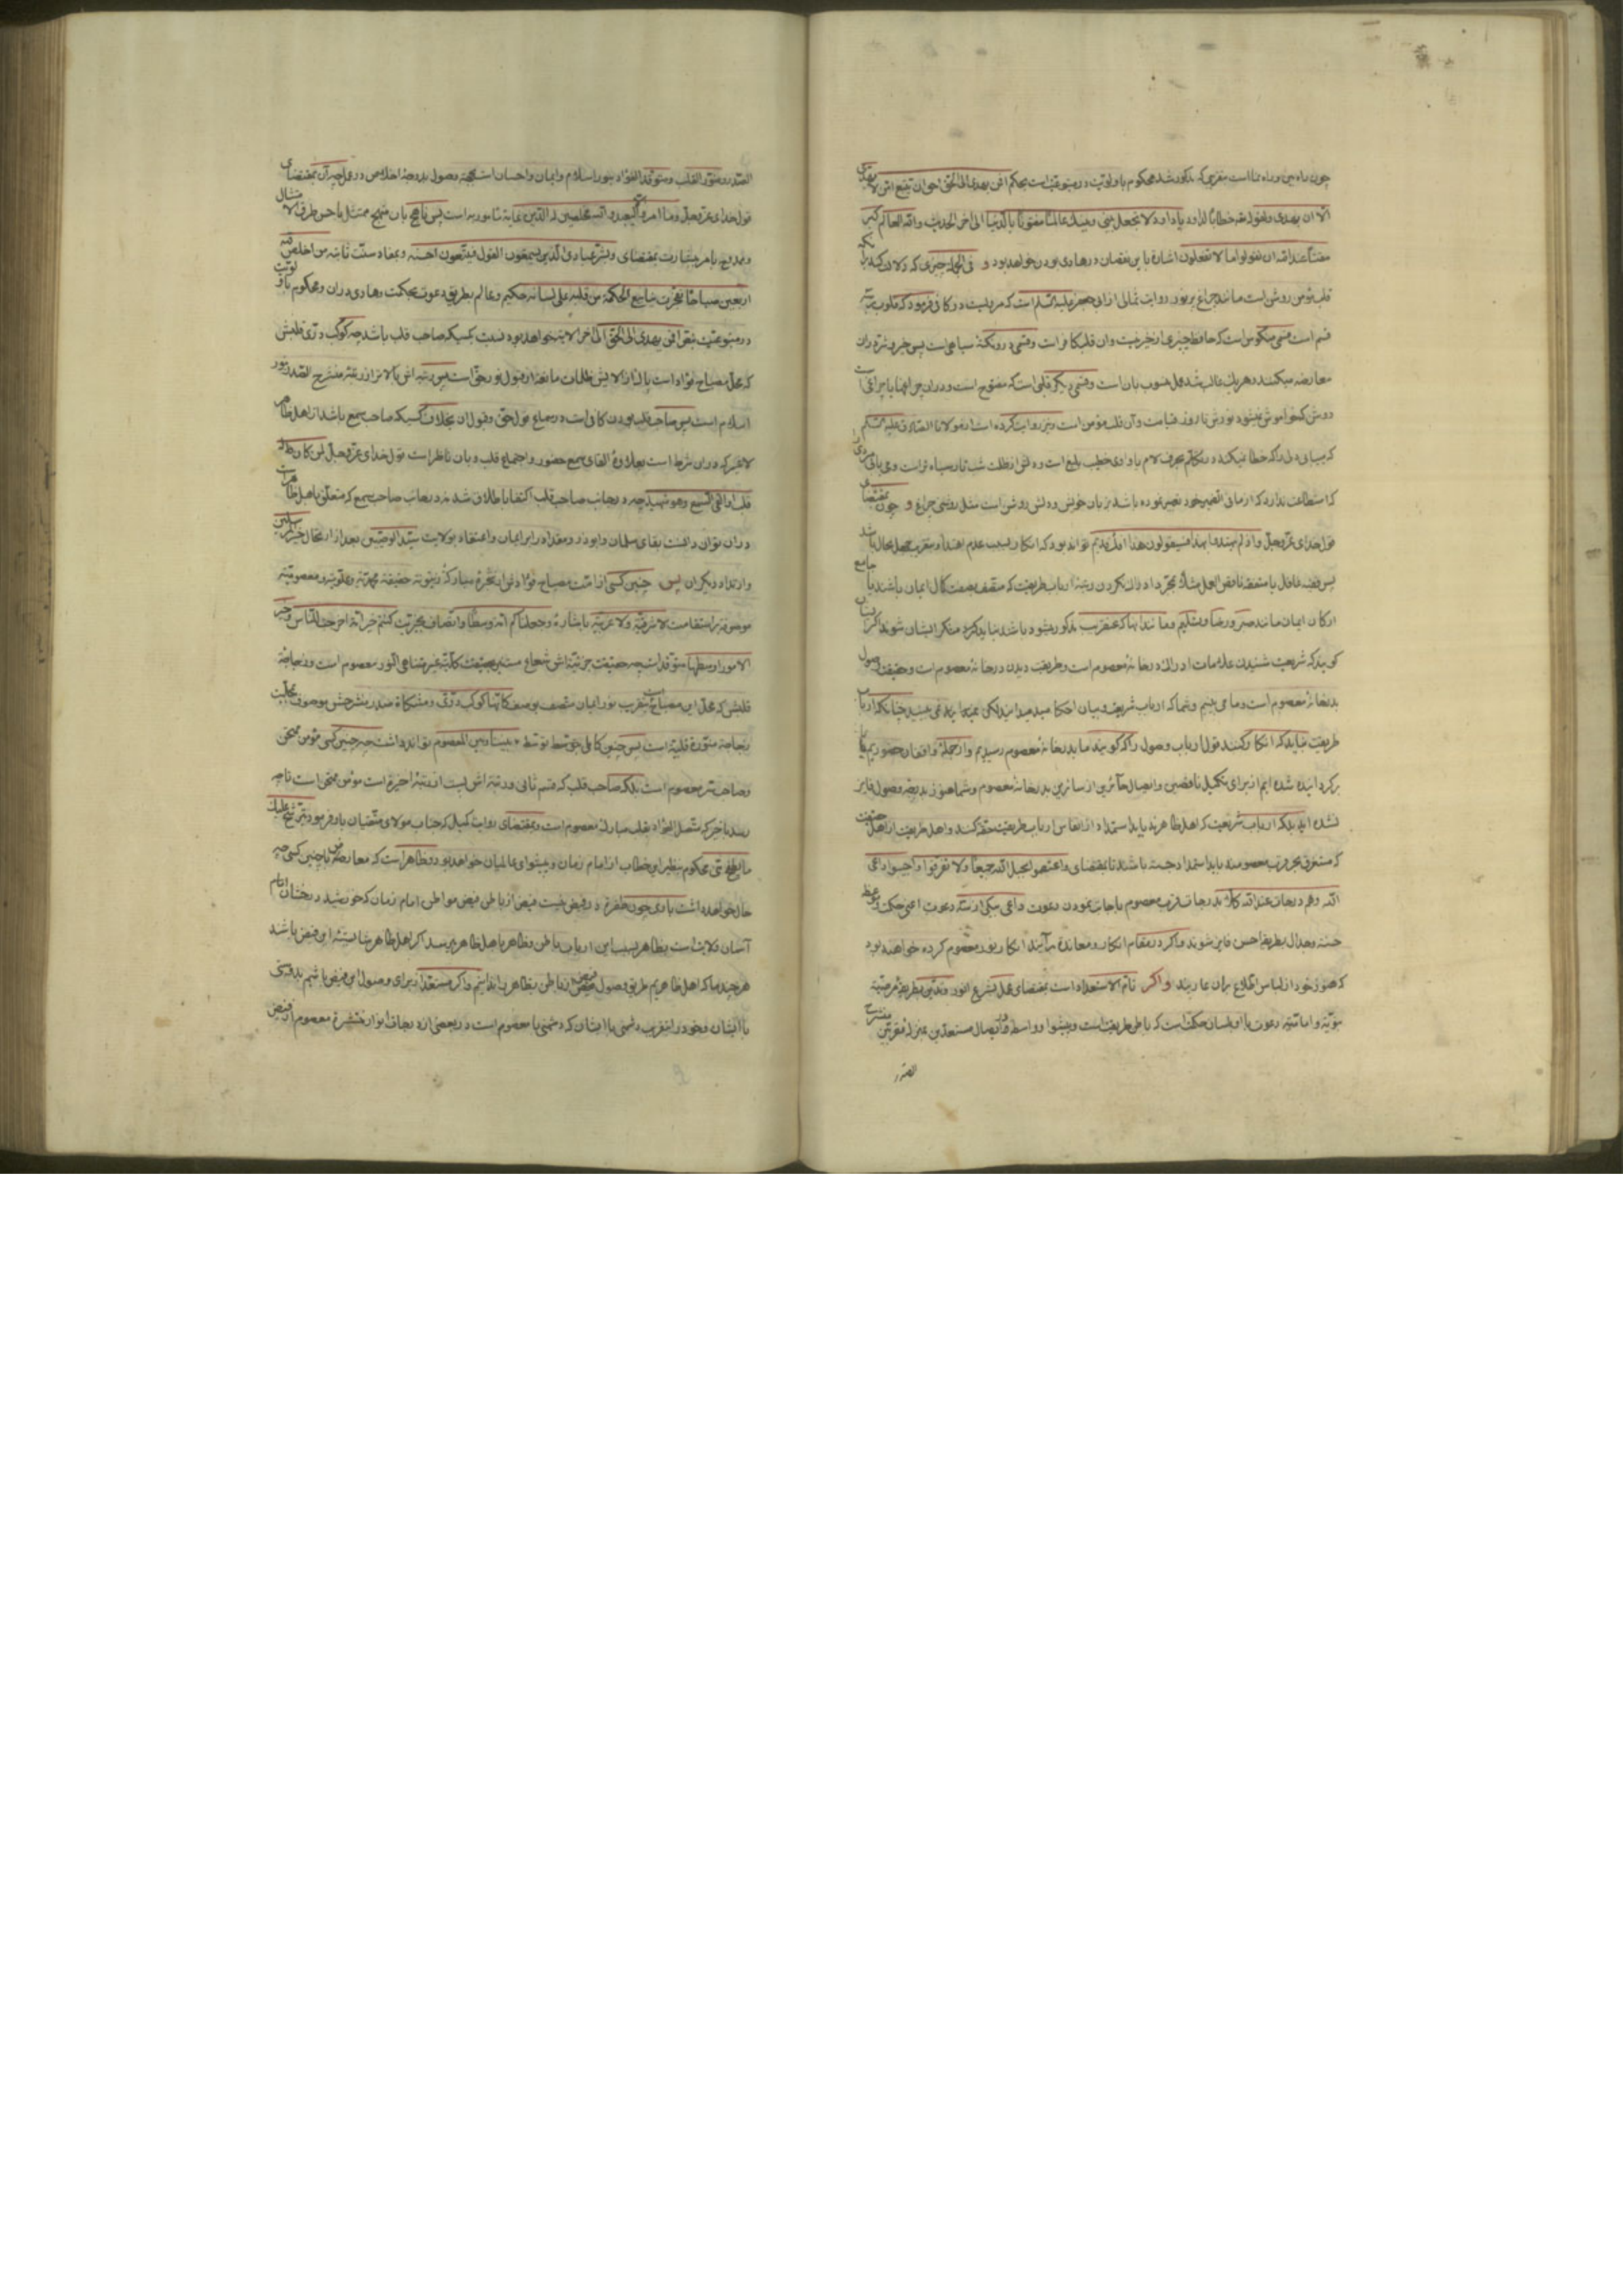 چون راه بین و راه نما است مقربی که مذکور شد محکوم باولویت در متبوعیت است بحکم افمن یهدی الی الحق احق ان یتبع امن لا یهدی
الا ان یهدی و بقول خطابا لداود یا داود لا تجعل بینی و بینک عالما مفتونا بالدنیا الی اخر الحدیث و الله العالم کبر
مقتا عند الله ان تقولوا ما لا تفعلون اشارة باین نقصان در هادی بودن خواهد بود و فی الجمله چیزی که دلالت کند بر آنکه
قلب مؤمن روشن است مانند چراغ پر نور روایت ثمالی از ابی جعفر علیه السلام است که مرویست در کافی فرمود که قلوب بر سه
قسم است قسمی منکوس است که حافظ چیزی از خیر نیست و آن قلب کافر است و قسمی در او نکته سیاهی است پس خیر و شر در آن
معارضه میکنند و هر یک غالب شد محل منسوب بآن است و قسمی دیگر قلبی است که مفتوح است و در آن چراغها یا چراغی است
روشن که خواموش نمیشود نورش تا روز قیامت و آن قلب مؤمن است و نیز روایت کرده است از مولانا الصادق علیه السلام
که میبابی مردی را که خطا نمیکند در تکلم بحرف لام یا واوی خطیب بلیغ است و دلش از ظلمت شب تار سیاه تر است و می یابی مردی را
که استطاعت ندارد که از ما فی الضمیر خود تعبیر نموده باشد بزبان خویش و دلش روشن است مثل روشنی چراغ و چون بمقتضای
قول خدای عز و جل و اذ لم یهتدوا به فسیقولون هذا افک قدیم تواند بود که انکار بسبب عدم اهتداء و بتقریب جهل بحال باشد
پس فقیه غافل یا متفقه ناقص العمل مثلا بمجرد ادراک نکردن رتبه ارباب طریقت که متصف بصفت کمال ایمان باشند یا جامع
ارکان ایمان مانند صبر و رضا و تسلیم و مانند اینها که عنقریب مذکور میشود باشد نباید که منکر ایشان شوند اگر ایشان
گویند که شریعت شنیدن علامات ادراک در خانه معصوم است و طریقت دیدن در خانه معصوم است و حقیقت وصول
بدر خانه معصوم است و ما می بینیم و شما که ارباب شریعت و بیان احکامید میدانید لکن نمی بینید چنانکه ارباب
طریقت نباید که انکار کنند قول ارباب وصول را که گویند ما بدر خانه معصوم رسیدیم و از جمله واقفان حضوریم یا
برگردانیده شده ایم از برای تکمیل ناقصین و ایصال حائرین از سائرین بدر خانه معصوم و شما هنوز بدرجه وصول فایز
نشده اید بلکه ارباب شریعت که اهل ظاهرند باید استمداد از انفاس ارباب طریقت حقه کنند و اهل طریقت از اهل حقیقت
که مستغرق بحر قرب معصومند باید استمداد جسته باشند تا بمقتضای و اعتصموا بحبل الله جمیعا و لا تفرقوا و اجیبوا داعی
الله و هم درجات عند الله کلا بدرجات قرب معصوم باجابت نمودن دعوت داعی بیکی از سه دعوت اعنی حکمت و موعظه
حسنه و جدال بطریق احسن فایز شوند و اگر در مقام انکار و معانده برآیند انکار بر نور معصوم کرده خواهند بود
که هنوز خود از لباس اطلاع بر آن عاریند و اگر تام الاستعداد است بمقتضای عمل بشرع انور و تدین بطریقه مرضیه
نبویه و امامتیه دعوت با او بلسان حکمت است که باطن طریقت است و پیشوا و واسطه در ایصال مستعدین بمنزله مقربین منشرح
الصدر
الصدر و منور القلب و متوقد الفؤاد بنور اسلام و ایمان و احسان است بجهة وصول بدرجه اخلاص در عمل چه آن بمقتضای
قول خدای عز و جل و ما امروا الا لیعبدوا الله مخلصین له الدین غایة مامور به است پس ناهج بآن منهج ممتثل باحسن طرق الامتثال
و ممدوح بامر ببشارت بمقتضای و بشر عبادی الذین یستمعون القول فیتبعون احسنه و بمفاد سنت ثابته من اخلص لله
اربعین صباحا تفجرت ینابیع الحکمة من قلبه علی لسانه حکیم و عالم بطریق دعوت بحکمت و هادی در آن و محکوم باولویت
در متبوعیت بنص افمن یهدی الی الحق الی اخر الایه خواهد بود نسبت بکسیکه صاحب قلب باشد چه کوکب دری قلبش
که محل مصباح فؤاد است پاک از الایش ظلمات مانعه از قبول نور حق است پس رتبه اش بالاتر از رتبه منشرح الصدر بنور
اسلام است پس صاحب قلب بودن کافی است در سماع قول حق و قبول آن بخلاف کسیکه صاحب سمع باشد از اهل ظاهر
لا غیر که در آن شرط است بعلاوه القای سمع حضور و اجتماع قلب و بآن ناظر است قول خدای عز و جل لمن کان له
قلب او القی السمع و هو شهید چه در جانب صاحب قلب اکتفا باطلاق شد نه در جانب صاحب سمع که متعلق باهل ظاهر است
در آن توان دانست بقای سلمان و ابوذر و مقداد را بر ایمان و اعتقاد بولایت سید الوصیین بعد از ارتحال خیر المرسلین
و ارتداد دیگران پس چنین کسی از امت مصباح فؤاد نورانی شجره مبارکه زیتونه حقیقة محمدیة و علویه و معصومیة
موصوفه باستقامت لا شرقیة و لا غربیة باشاره و جعلناکم امة وسطا و اتصاف بخیریت کنتم خیر امة اخرجت للناس و خیر
الامور اوسطها متوقد است چه حقیقت جزئیه اش شعاع مستنیر بحقیقت کلیه غیر متناهی النور معصوم است و زجاجه
قلبش که محل این مصباح است بتقریب نور ایمان متصف بوصف کانها کوکب دری و مشکاة صدر منشرحش موصوف بمحلیت
زجاجه منوره قلبیه است پس چنین کاملی حق توسط توسط بیننا و بین المعصوم تواند داشت چه چنین کسی مؤمن ممتحن
و صاحب سر معصوم است بلکه صاحب قلب که قسم ثانی و رتبه اش پست از رتبه اخیره است مؤمن ممتحن است تا چه
رسد باخر که متصل الفؤاد بقلب مبارک معصوم است و بمقتضای روایت کمیل که جناب مولای متقیان باو فرمود یترشح علیک
ما یطفح منی محکوم بنظیر این خطاب از امام زمان و پیشوای عالمیان خواهد بود و ظاهر است که معارض با چنین کسی چه
حال خواهد داشت باری چون طفره در فیض نیست فیض از باطن فیض مواطن امام زمان که خورشید درخشان تمام
آسمان ولایت است بظاهر بسبب این ارباب باطن و ظاهر باهل ظاهر میرسد اگر اهل ظاهر شایسته این فیض باشد
هر چند ما که اهل ظاهریم طریق وصول فیض را از باطن بظاهر ندانیم و اگر مستعد از برای وصول این فیض باشیم بدوستی
با ایشان و خود را بتقریب دشمنی با ایشان که دشمنی با معصوم است در بعضی از درجات انوار منتشره معصوم از فیض